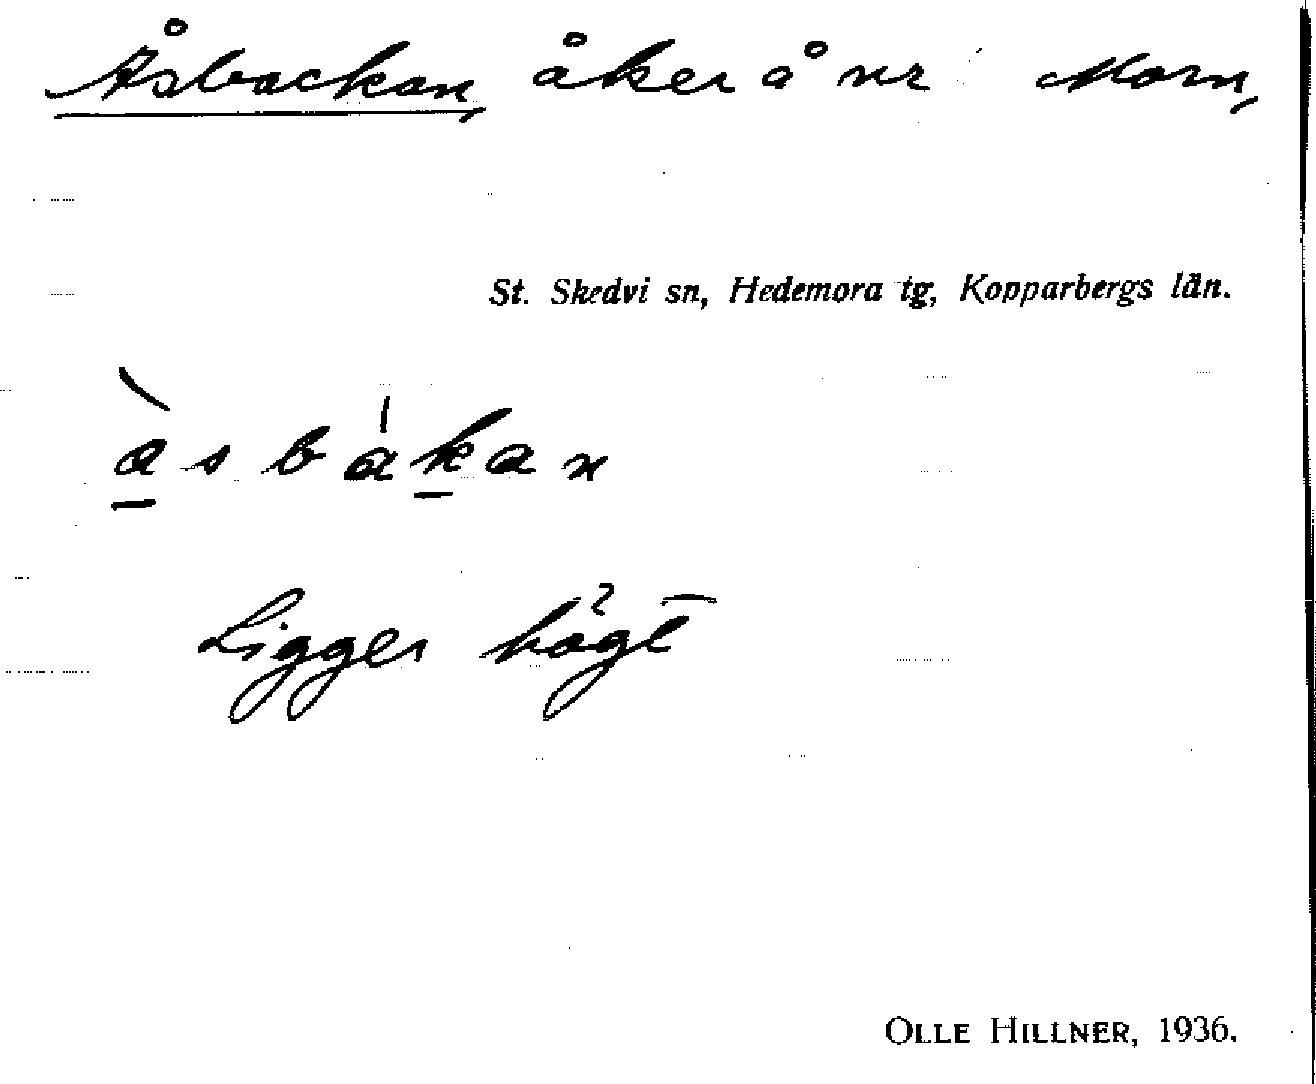 Åsbackan, åker å nr Morn,
St. Skedvi sn, Hedemora tg, Kopparbergs län.
à̲ s b á k̲ a n
Ligger högt
OLLE HILLNER, 1936.